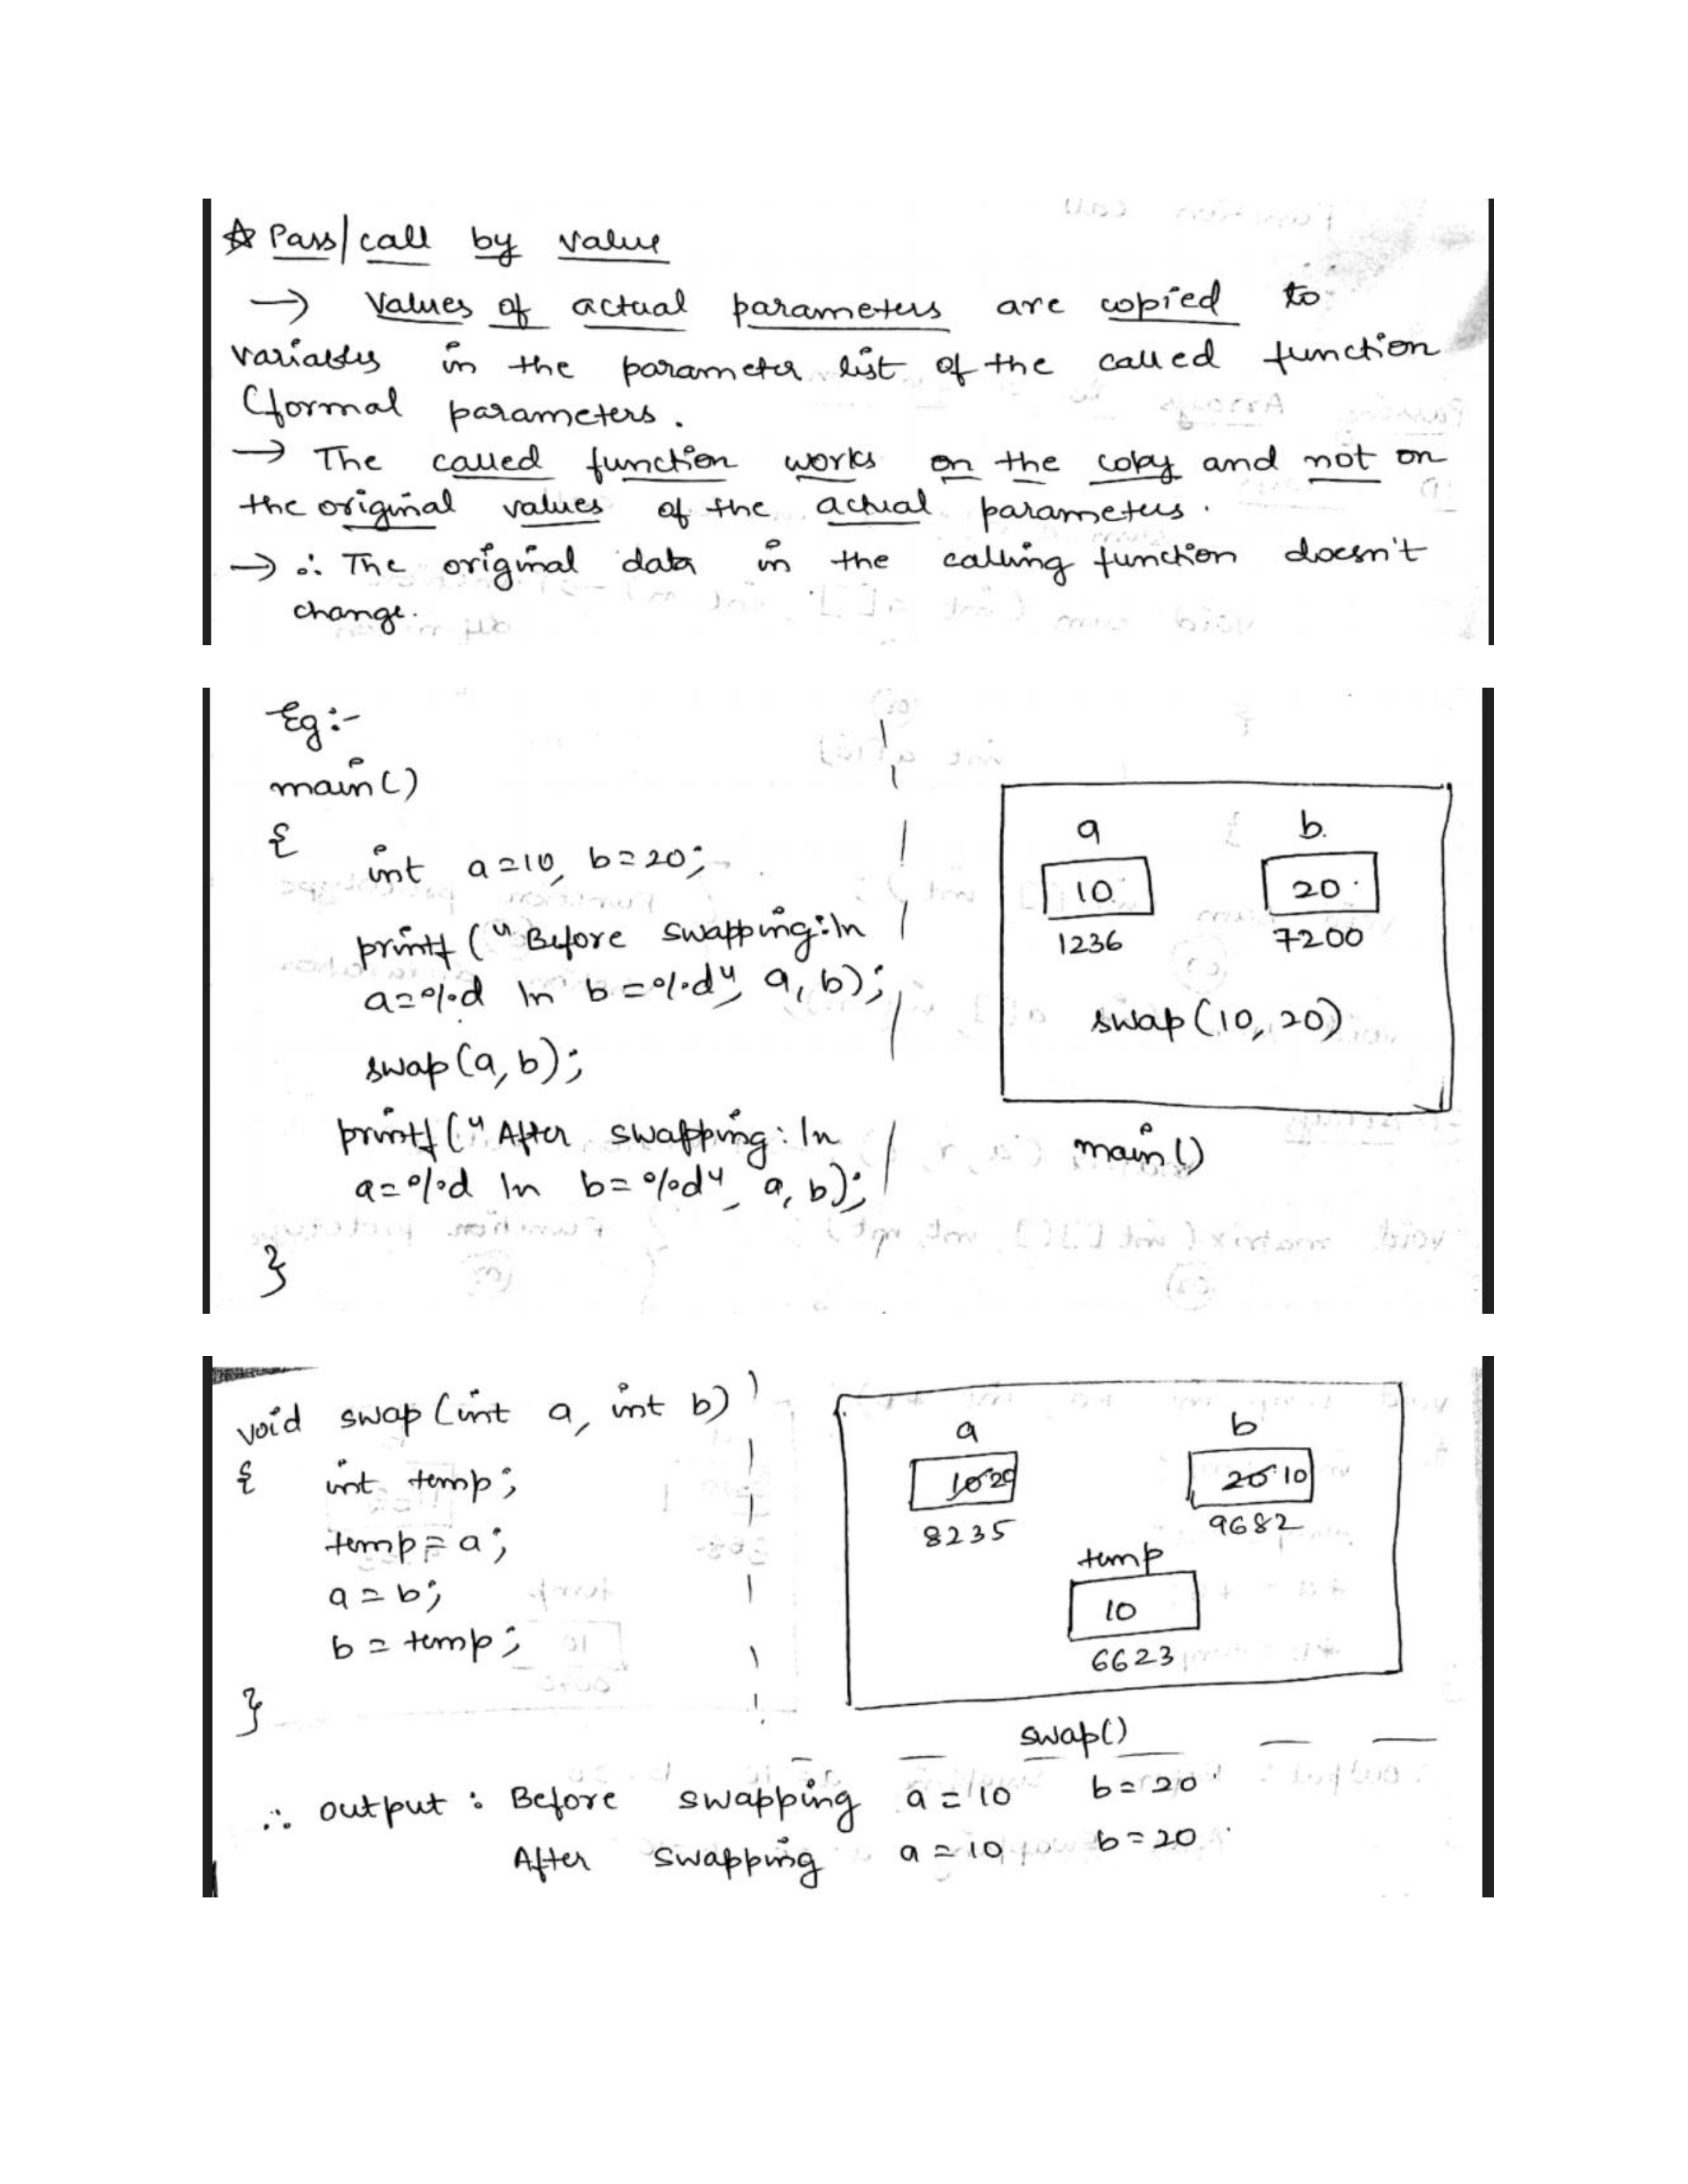 ☆ Pass/call by value
→ Values of actual parameters are copied to
variables in the parameter list of the called function
(formal parameters.
→ The called function works on the copy and not on
the original values of the actual parameters.
→ ∴ The original data in the calling function doesn't
change.
Eg:-
main()
{
int a=10, b=20;
printf ("Before swapping:\n
a=%d \n b=%d", a, b);
swap(a, b);
printf ("After swapping: \n
a=%d \n b=%d", a, b);
}
a b
10 20
1236 7200
swap(10, 20)
main()
void swap (int a, int b)
{ int temp;
temp = a;
a = b;
b = temp;
}
a b
10 20 20 10
8235 9682
temp
10
6623
swap()
∴ output : Before swapping a = 10 b = 20
After swapping a = 10 b = 20